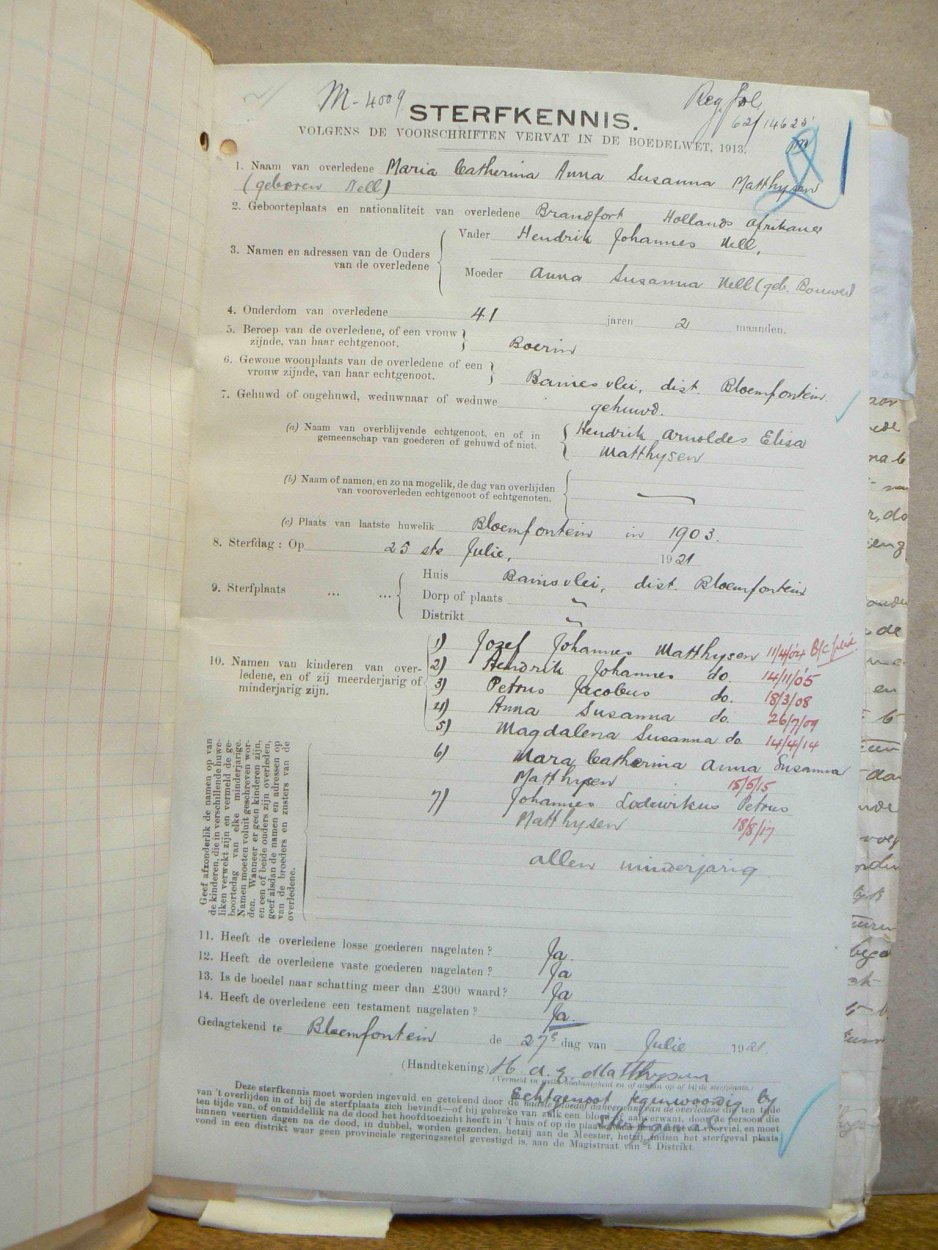 M-4009
Reg. fol.
62/14625
STERFKENNIS.
VOLGENS DE VOORSCHRIFTEN VERVAT IN DE BOEDELWET, 1913.
1. Naam van overledene Maria Catherina Anna Susanna Matthysen
(geboren Nell)
2. Geboorteplaats en nationaliteit van overledene Brandfort Hollands Afrikaner
3. Namen en adressen van de Ouders van de overledene
Vader Hendrik Johannes Nell,
Moeder Anna Susanna Nell (geb. Bouwer)
4. Ouderdom van overledene 41 jaren 2 maanden.
5. Beroep van de overledene, of een vrouw
zijnde, van haar echtgenoot. Boerin
6. Gewone woonplaats van de overledene of een
vrouw zijnde, van haar echtgenoot. Bainsvlei, dist. Bloemfontein
7. Gehuwd of ongehuwd, weduwnaar of weduwe gehuwd.
(a) Naam van overblijvende echtgenoot, en of in
gemeenschap van goederen of gehuwd of niet.
Hendrik Arnoldes Elisa
Matthysen
(b) Naam of namen, en zo na mogelik, de dag van overlijden
van vooroverleden echtgenoot of echtgenoten.
(c) Plaats van laatste huwelik Bloemfontein in 1903.
8. Sterfdag: Op 25 ste Julie, 1921
9. Sterfplaats ... ...
Huis Bainsvlei, dist. Bloemfontein
Dorp of plaats "
Distrikt "
10. Namen van kinderen van over-
ledene, en of zij meerderjarig of
minderjarig zijn.
1) Jozef Johannes Matthysen 11/4/04
2) Hendrik Johannes do. 14/11/05
3) Petrus Jacobus do. 18/3/08
4) Anna Susanna do. 26/7/09
5) Magdalena Susanna do. 14/4/14
6) Mara Catherina Anna Susanna
Matthysen 15/5/15
7) Johannes Lodewikus Petrus
Matthysen 18/8/17
allen minderjarig
Geef afzonderlik de namen op van
de kinderen, die in verschillende huwe-
liken verwekt zijn en vermeld de ge-
boortedag van elke minderjarige.
Namen moeten voluit geschreven wor-
den. Wanneer er geen kinderen zijn,
en een of beide ouders zijn overleden,
geef alsdan de namen en adressen op
van de broeders en zusters van de
overledene.
11. Heeft de overledene losse goederen nagelaten? Ja.
12. Heeft de overledene vaste goederen nagelaten? Ja
13. Is de boedel naar schatting meer dan £300 waard? Ja
14. Heeft de overledene een testament nagelaten? Ja.
Gedagtekend te Bloemfontein de 27e dag van Julie 1921
(Handtekening) H. A. E. Matthysen
Echtgenoot tegenwoordig by
Deze sterfkennis moet worden ingevuld en getekend door de
van 't overlijden in of bij de sterfplaats zich bevindt—of bij gebreke van zulk een
ten tijde van, of onmiddelik na de dood het hoofdtoezicht heeft in 't huis of op de plaats
binnen veertien dagen na de dood, in dubbel, worden gezonden, hetzij aan de Meester, hetzij, indien het sterfgeval plaats
vond in een distrikt waar geen provinciale regeringszetel gevestigd is, aan de Magistraat van 't Distrikt.